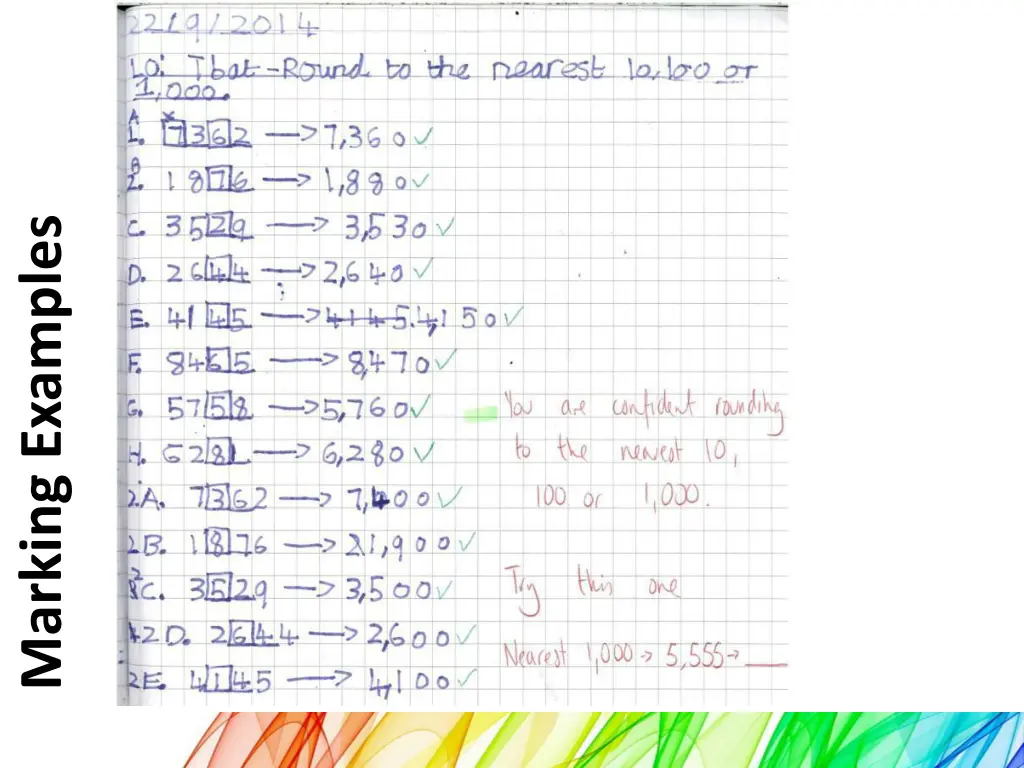 Marking Examples
22/9/2014
LO: Tbat - Round to the nearest 10, 100 or
1,000.
A
1. 7362 → 7,360 ✓
B
2. 1876 → 1,880 ✓
C. 3529 → 3,530 ✓
D. 2644 → 2,640 ✓
E. 4145 → 4145. 4,150 ✓
F. 8465 → 8,470 ✓
G. 5758 → 5,760 ✓
H. 6281 → 6,280 ✓
2A. 7362 → 7,400 ✓
2B. 1876 → 21,900 ✓
2C. 3529 → 3,500 ✓
2D. 2644 → 2,600 ✓
2E. 4145 → 4,100 ✓
You are confident rounding
to the nearest 10,
100 or 1,000.
Try this one
Nearest 1,000 → 5,555 → ___